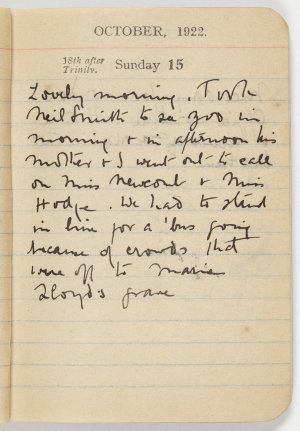 OCTOBER, 1922.
18th after
Trinity.
Sunday 15
Lovely morning. Took
Neil Smith to see zoo in
morning & in afternoon his
mother & I went out to call
on Miss Newcomb & Miss
Hodge. We had to stand
in line for a 'bus going
because of crowds that
were off to Marie
Lloyd's grave